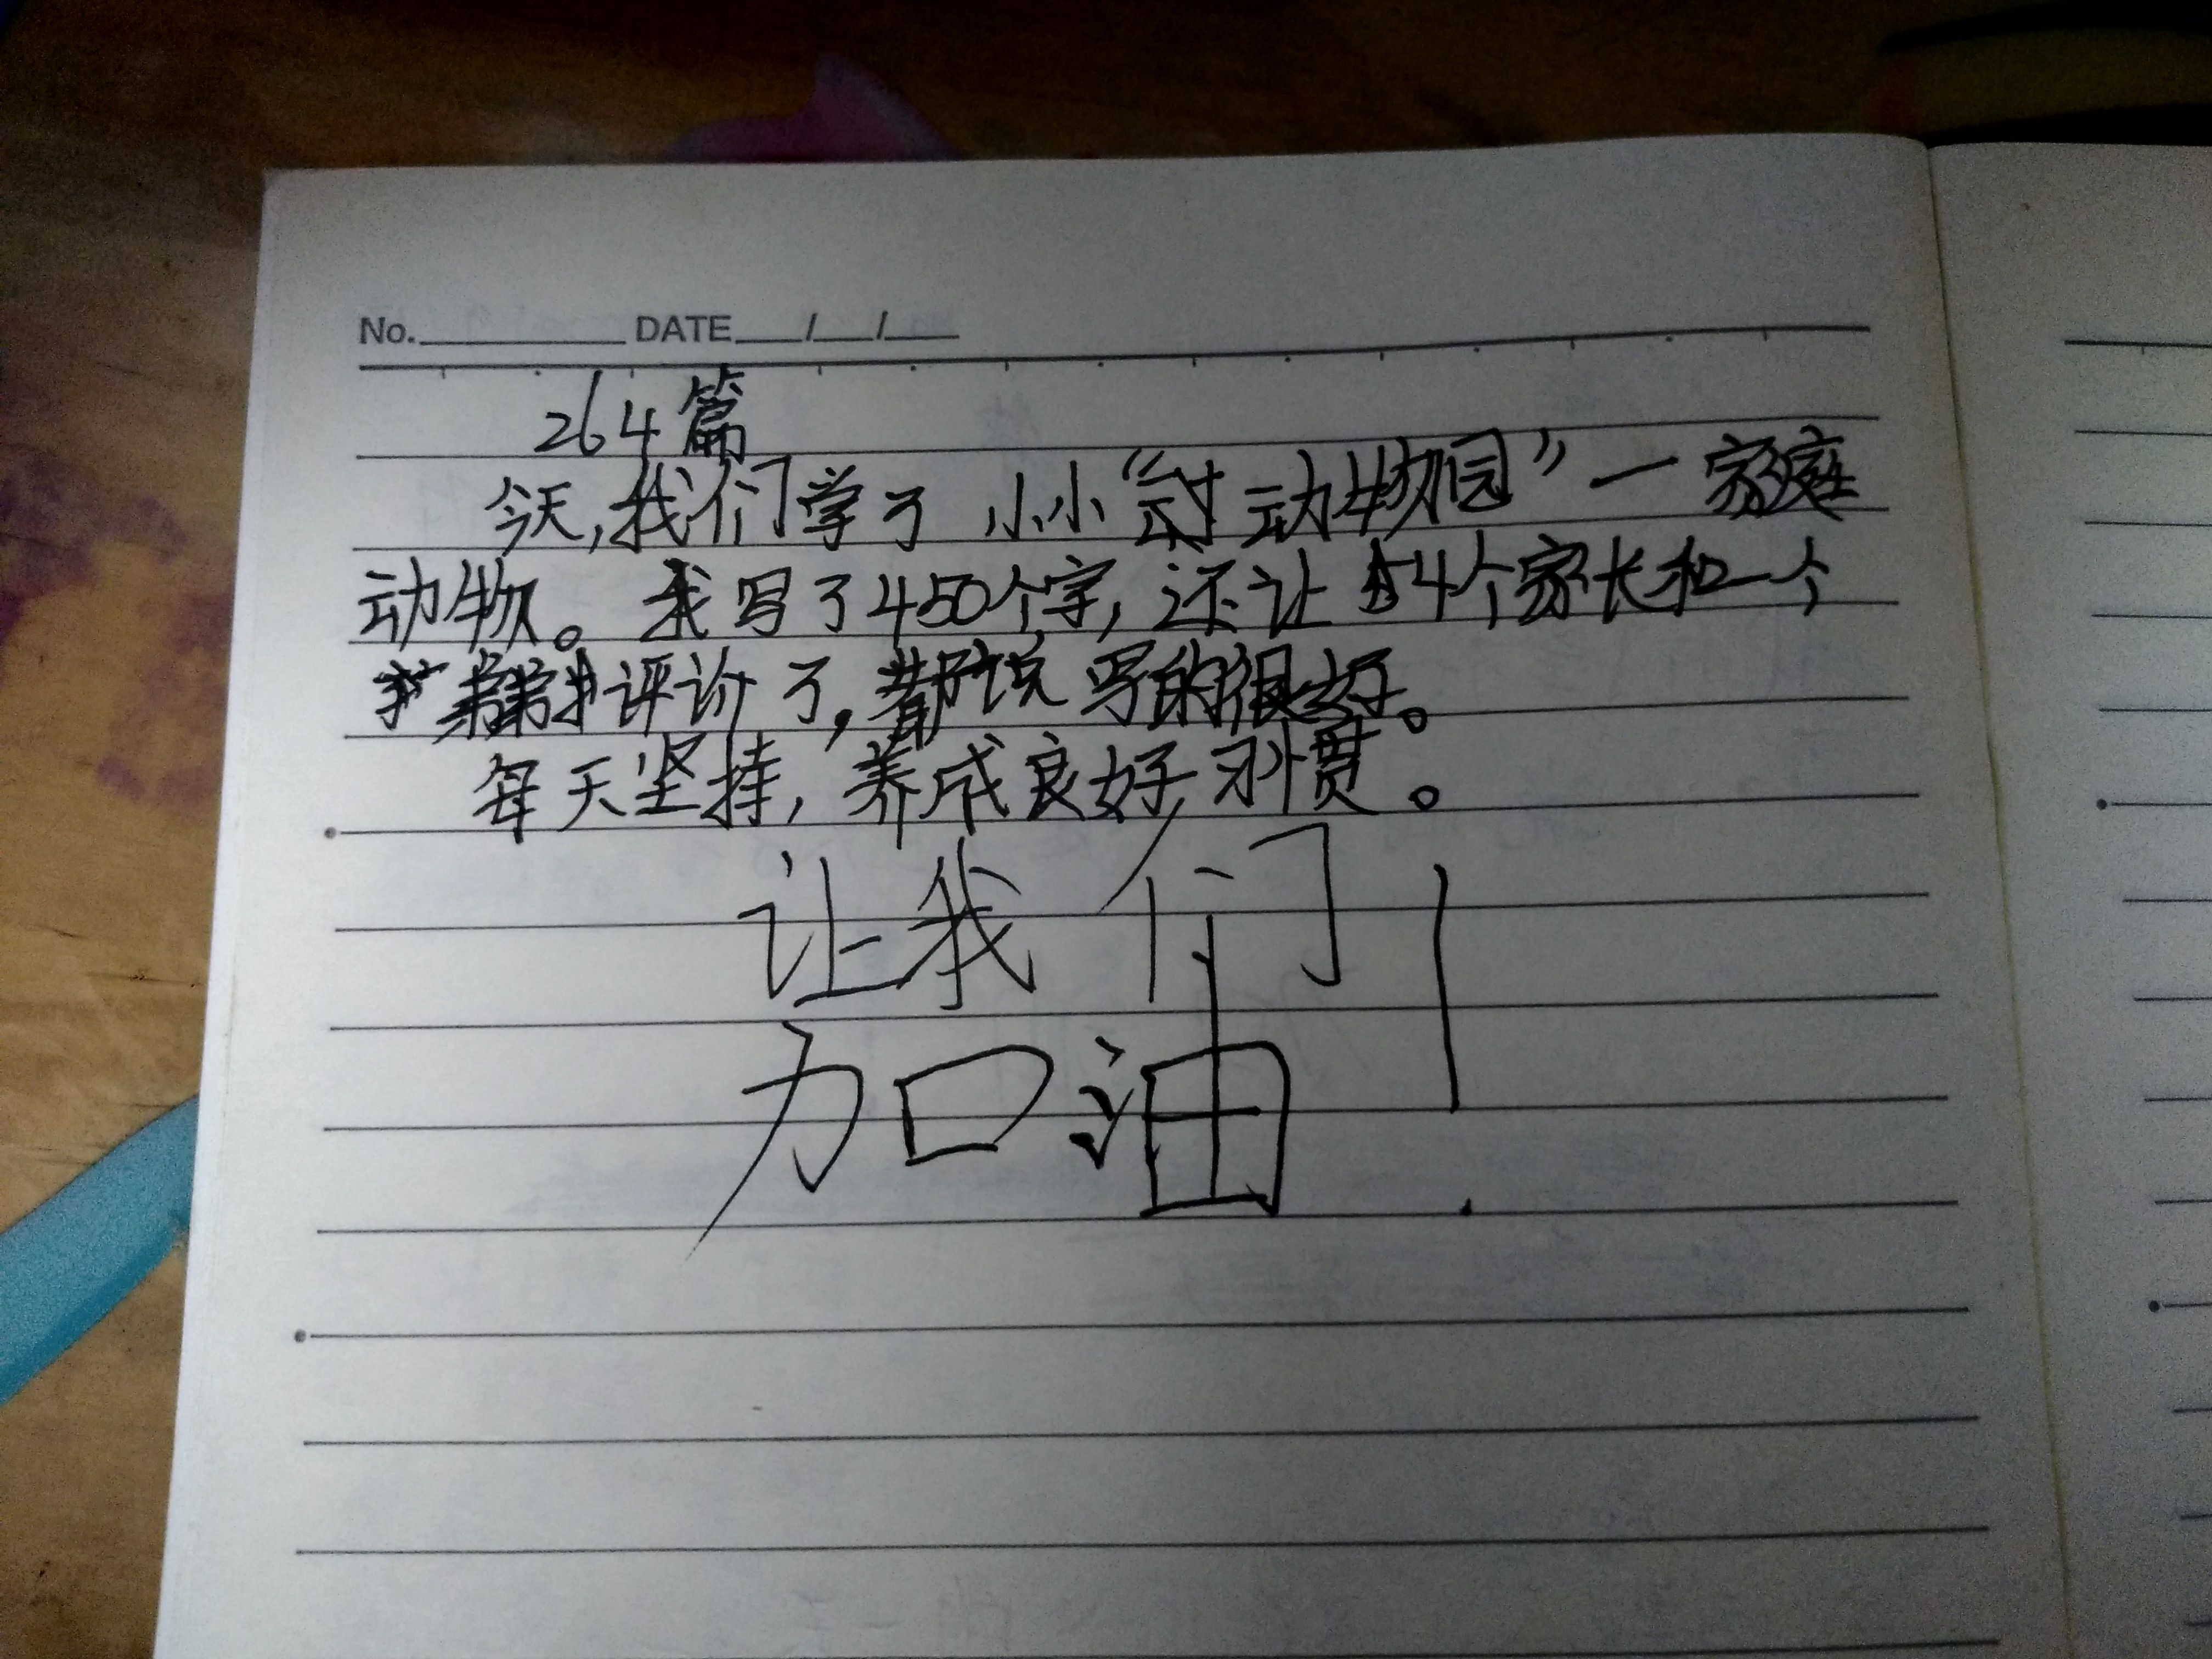 No. DATE / /
264篇
今天,我们学了小小“动物园”一家庭
动物。我写了450个字,还让4个家长和一个
弟弟评价了,都说写的很好。
每天坚持,养成良好习惯。
让我们
加油!